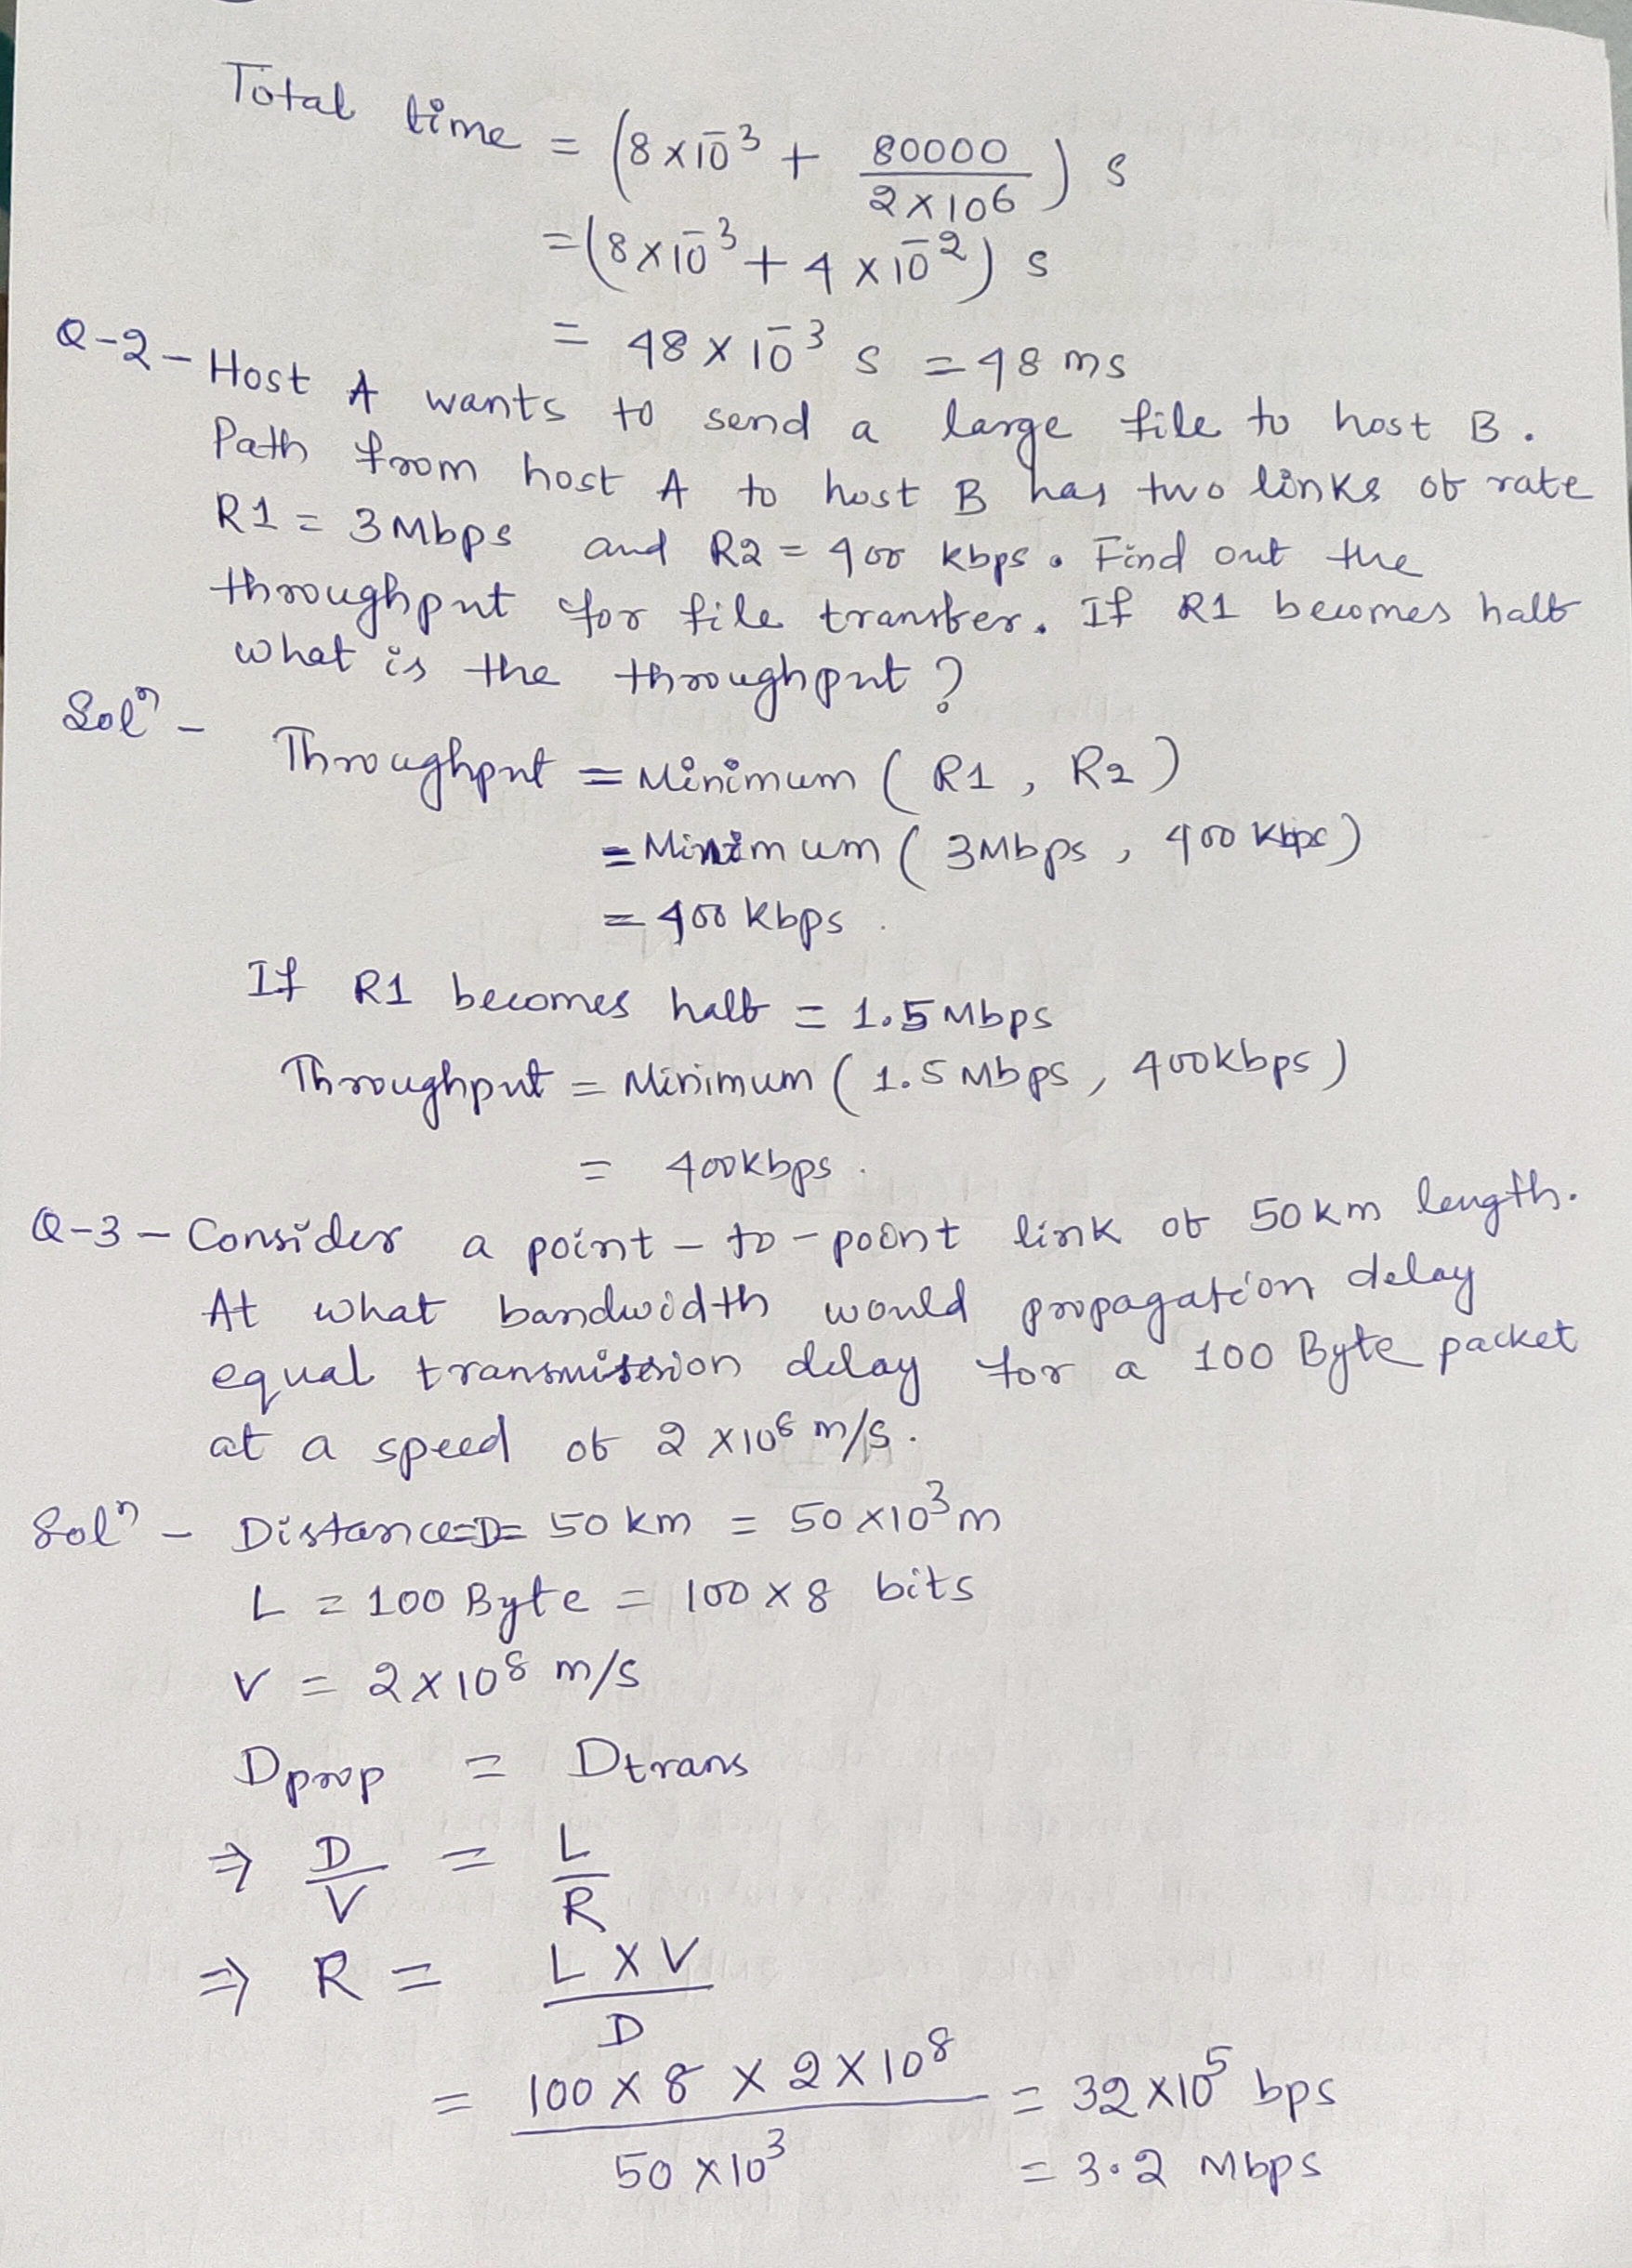 Total time = (8×10⁻³ + 80000/2×10⁶) s
= (8×10⁻³ + 4×10⁻²) s
= 48×10⁻³ s = 48 ms
Q-2 - Host A wants to send a large file to host B.
Path from host A to host B has two links of rate
R1 = 3Mbps and R2 = 400 kbps. Find out the
throughput for file transfer. If R1 becomes half
what is the throughput?
Solⁿ -
Throughput = Minimum (R1, R2)
= Minimum (3Mbps, 400 Kbps)
= 400 kbps.
If R1 becomes half = 1.5Mbps
Throughput = Minimum (1.5 Mbps, 400kbps)
= 400kbps.
Q-3 - Consider a point-to-point link of 50km length.
At what bandwidth would propagation delay
equal transmission delay for a 100 Byte packet
at a speed of 2×10⁸ m/s.
Solⁿ - Distance=D= 50 km = 50×10³m
L = 100 Byte = 100×8 bits
V = 2×10⁸ m/s
Dprop = Dtrans
⇒ D/V = L/R
⇒ R = L×V/D
= 100×8×2×10⁸/50×10³ = 32×10⁵ bps
= 3.2 Mbps